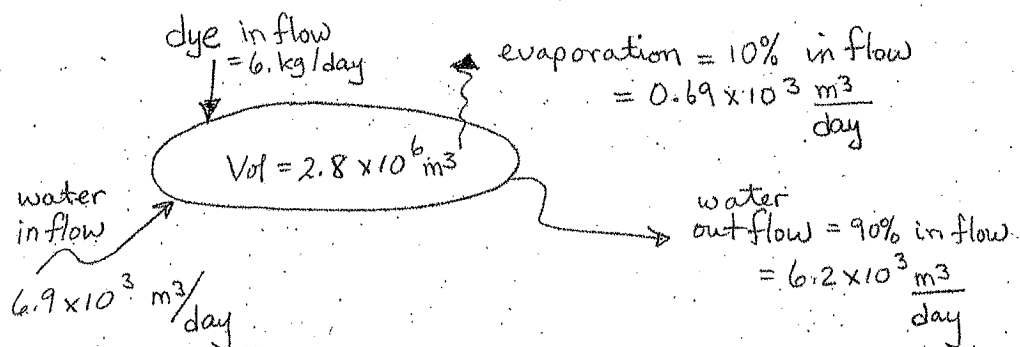 dye inflow
= 6. kg/day
evaporation = 10% inflow
= 0.69 x 10³ m³/day
Vol = 2.8 x 10⁶ m³
water
inflow
6.9 x 10³ m³/day
water
outflow = 90% inflow
= 6.2 x 10³ m³/day